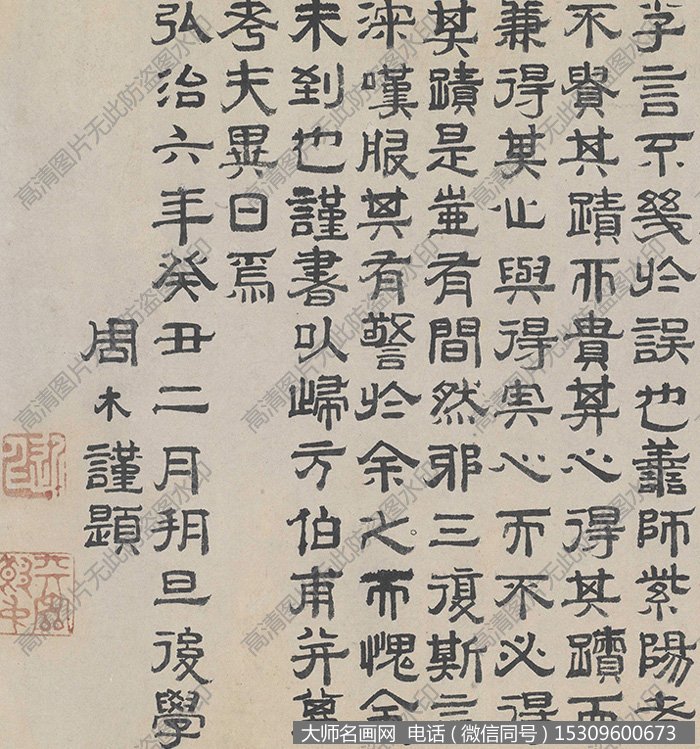 字言不幾於誤也善師紫陽者
不貴其蹟而貴其心得其蹟而
兼得其心與得其心而不必得
其蹟是豈有間然邪三復斯言
深嘆服其有警於余之而愧余
未到也謹書以歸方伯甫并
考夫異日焉
弘治六年癸丑二月朔旦後學
周木謹題
高清图片无此防盗图水印
大师名画网 电话（微信同号）15309600673